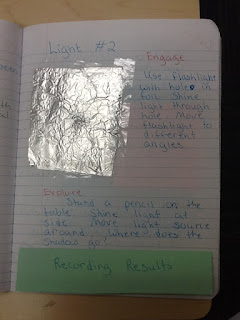 Light #2
Engage
Use flashlight
with hole in
foil Shine
light through
hole Move
flashlight to
different
angles.
Explore
Stand a pencil on the
table. Shine light at
side. Move light source
around. Where does the
shadow go?
Recording Results